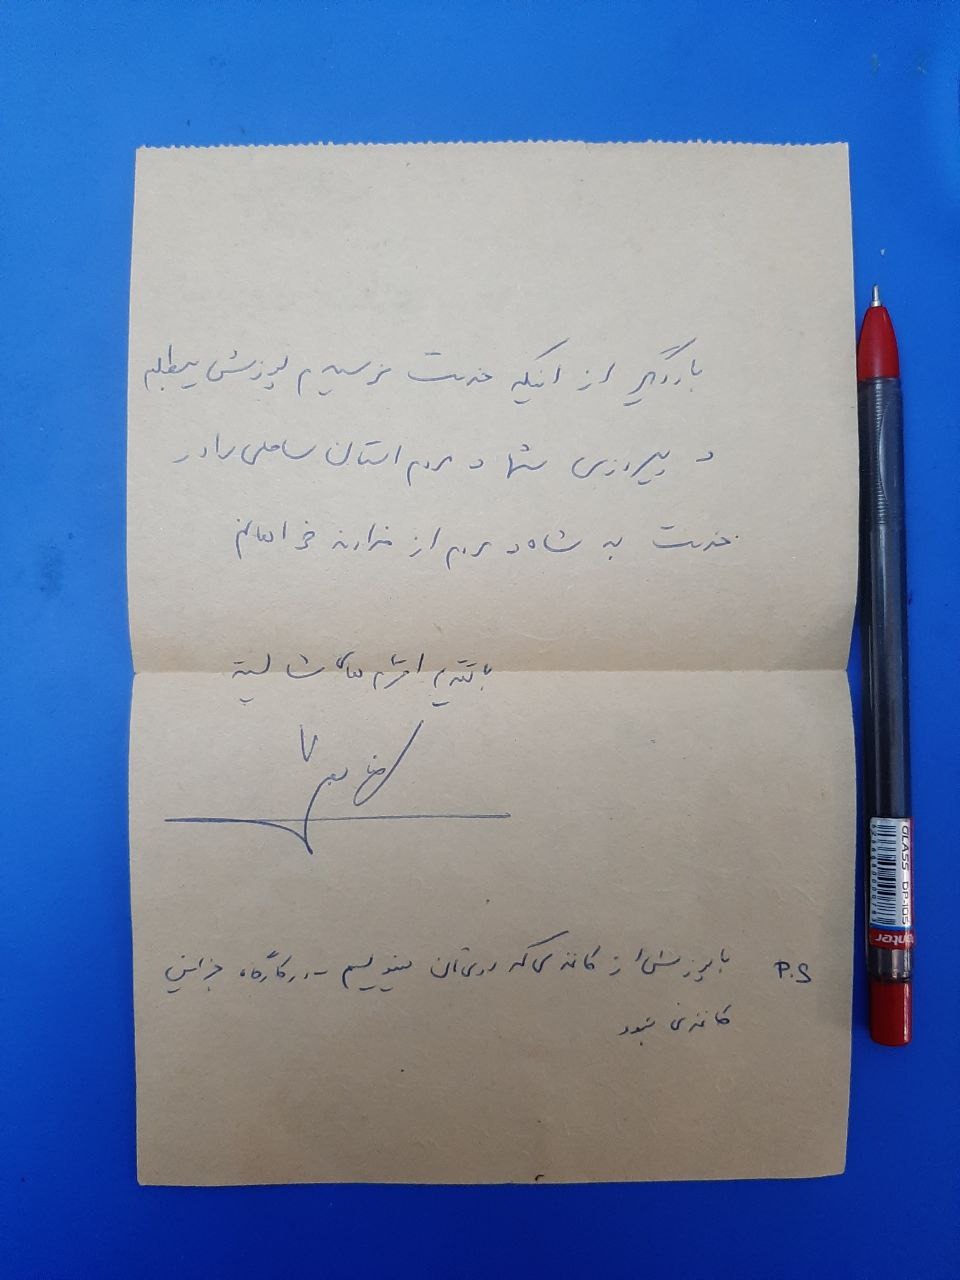 باردیگر از اینکه خدمت نرسیدم پوزش میطلبم
و پیروزی شما و مردم استان ساحلی را در
خدمت به شاه و مردم از خداوند خواهانم
با تقدیم احترام شایسته
P.S با پوزش از کاغذی که روی آن مینویسم - در کارگاه جز این
کاغذی نبود
CLASS DP-105